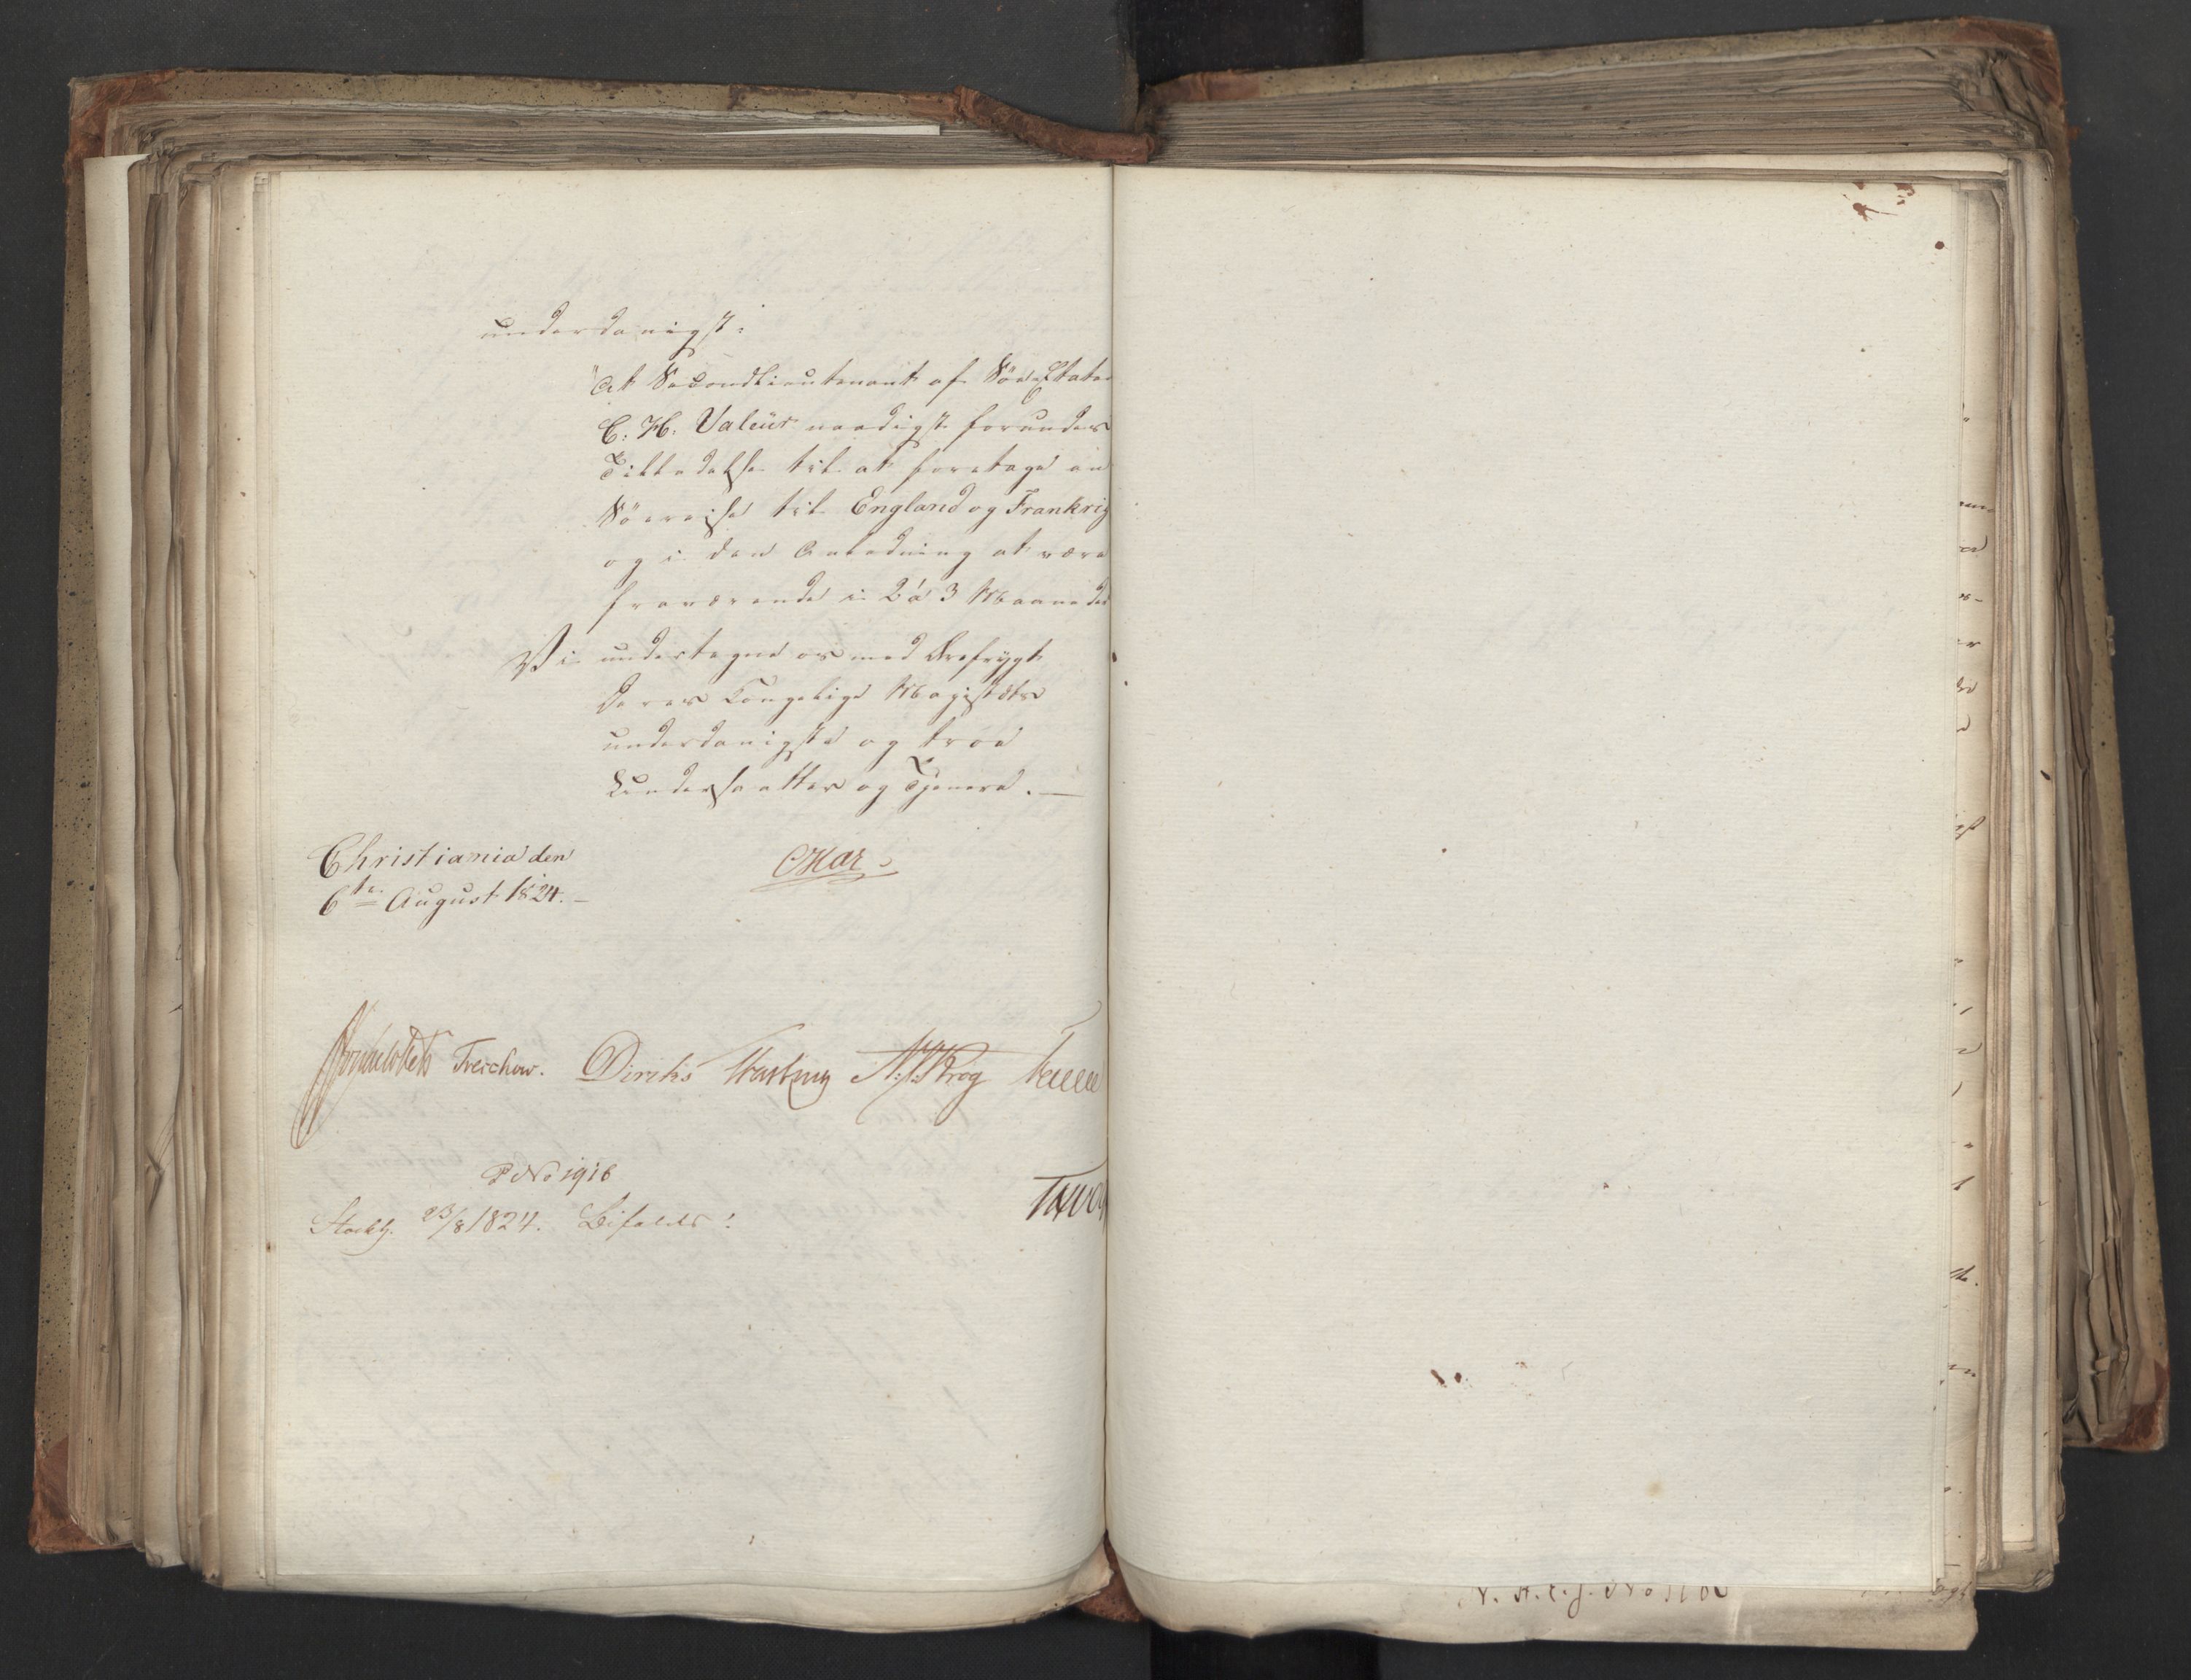 underdanigst:
"At Secondlieutenant af Søe-Etaten
C: H: Valeur naadigst forundes
Tilladelse til at foretage en
Söereise til England og Frankrig
og i den Anledning at være
fraværende i 2 á 3 Maaneder
Vi undertegne os med Ærefrygt
Deres Kongelige Majestæts
underdanigste og troe
Undersaatter og Tjenere. —
Christiania den
6te August 1824. –
Oskar
Treschow. Diriks N: J: Krog
P No 1916
Stockh. 23/8 1824. Bifaldes!